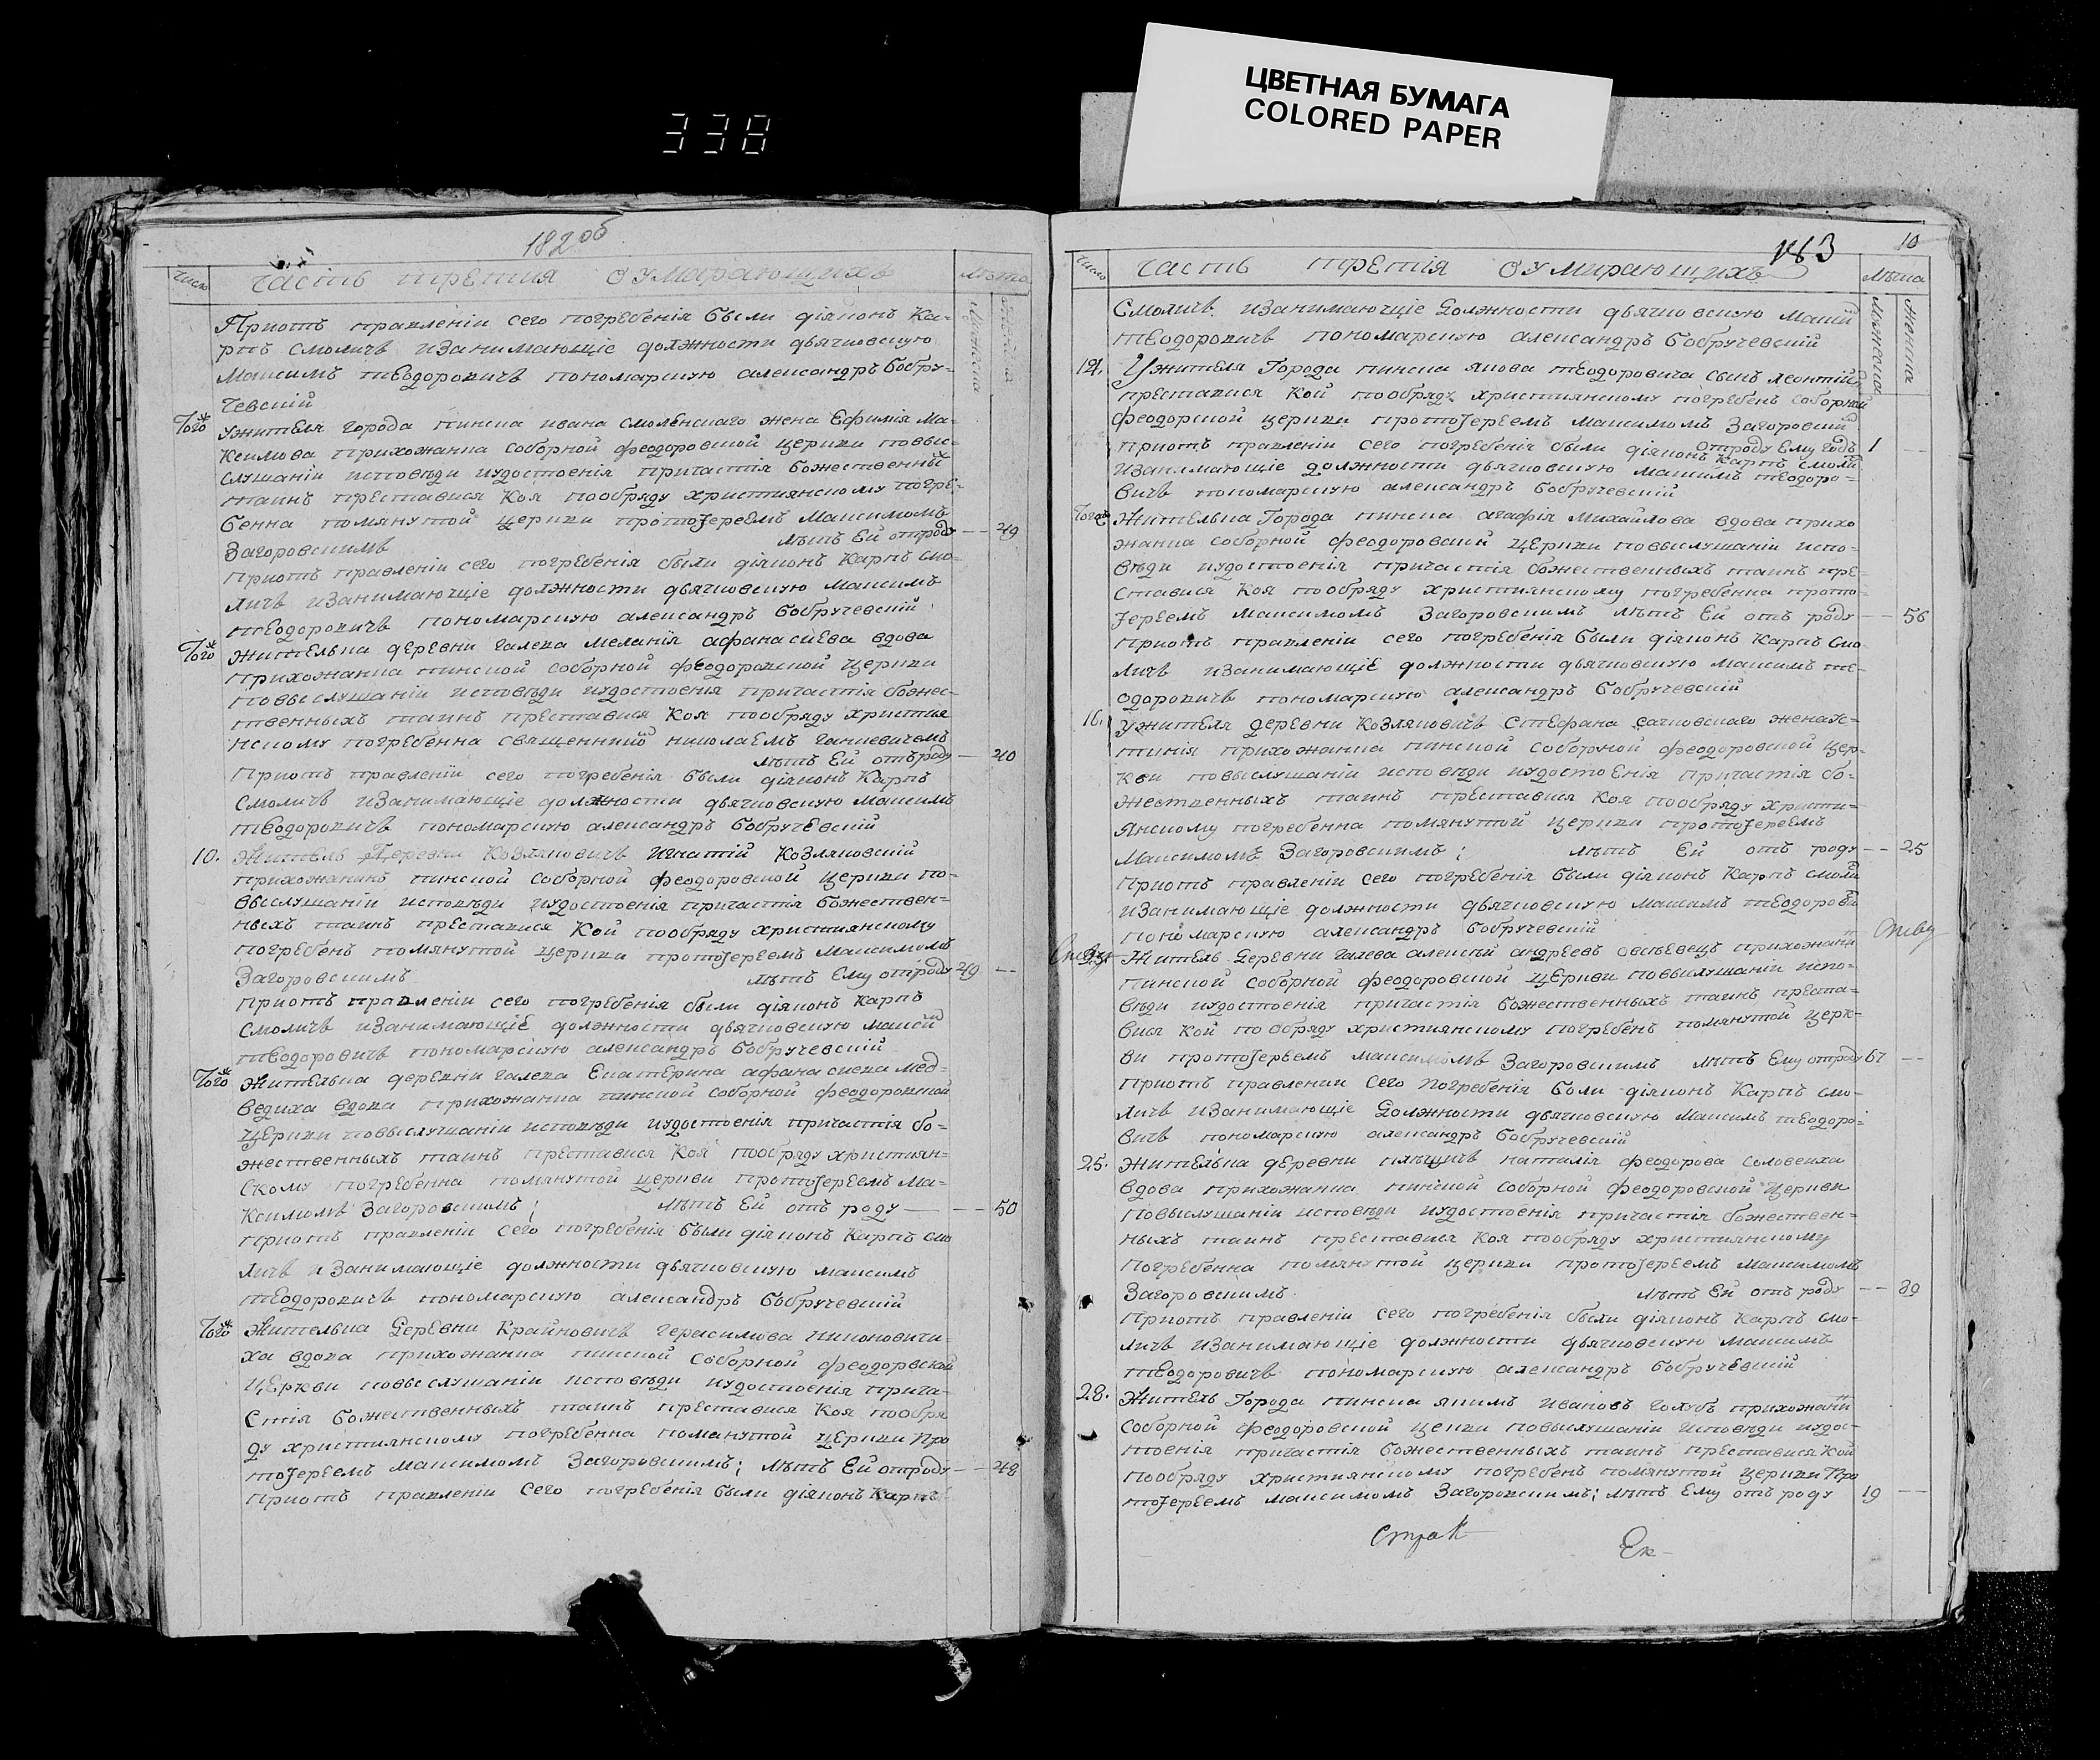 ЦВЕТНАЯ БУМАГА
COLORED PAPER
338
182 об
число
часть третия о умирающихъ
лѣта
мужеска
женска
Приотъ правленіи сего погребенія были діяконъ Ка-
рпъ Смоличъ и занимающіе должности дьячковскую
Максимъ теодоровичъ пономарскую александръ Бобру-
чевскій
Того ж
У жителя города пинска ивана смоленскаго жена Ефимія Ма-
ксимова прихожанка соборной феодоровской церкви по выс-
слушаніи исповѣди и удостоенія причастія Божественны
таинъ преставися Коя по обряду християнскому погре-
бенна помянутой церкви протоіереемъ Максимомъ
Загоровскимъ лѣтъ Ей отроду -- 49
Приотъ правленіи сего погребенія были діяконъ Карпъ Смо-
личъ и занимающіе должности дьячковскую максимъ
теодоровичъ пономарскую александръ Бобручевскій
Того ж
Жителька деревни галева меланія афанасиева вдова
прихожанка пинской соборной феодоровской церкви
по выслушаніи исповѣди и удостоенія причастія божес-
твенныхъ таинъ преставися Коя по обряду християн
нскому погребенна священникой николаемъ
лѣтъ Ей отъроду -- 40
Приотъ правленіи сего погребенія были діяконъ Карпъ
Смоличъ и занимающіе должности дьячковскую максимъ
теодоровичъ пономарскую александръ бобручевскій
10. Житель Деревни Козляковичъ Игнатій Козляковскій
прихожанинъ пинской соборной феодоровской церкви по-
выслушаніи исповѣди и удостоенія причастія божествен-
ныхъ таинъ преставися Кой по обряду християнскому
погребенъ помянутой церкви протоіереемъ Максимомъ
Загоровскимъ лѣтъ Ему отроду 49 --
Приотъ правленіи сего погребенія были діяконъ Карпъ
Смоличъ и занимающіе должности дьячковскую максим
теодоровичъ пономарскую александръ бобручевскій
Того ж
Жителька деревни галева Екатерина афанасиева мед-
ведиха вдова прихожанка пинской соборной феодоровской
Церкви по выслушаніи исповѣди и удостоенія причастія бо-
жественныхъ таинъ преставися Коя по обряду християн-
скому погребенна помянутой церкви протоіереемъ Ма-
ксимомъ Загоровскимъ; лѣтъ Ей отъ роду -- 50
Приотъ правленіи сего погребенія были діяконъ Карпъ Смо
личъ и Занимающіе должности дьячковскую максимъ
теодоровичъ пономарскую александръ Бобручевскій
Того ж
Жителька Деревни Крайновичъ герасимова
ха вдова прихожанка пинской соборной феодоровской
Церкви по выслушаніи исповѣди и удостоенія прича-
стія божественныхъ таинъ преставися Коя по обря
ду християнскому погребенна поманутой церкви про
тоіереемъ максимомъ Загоровскимъ; лѣтъ Ей отроду -- 48
Приотъ правленіи сего погребенія были діяконъ Карпъ
183
10
число
часть третія о умирающихъ
лѣта
мужеска
женска
Смоличъ и занимающіе Должности дьячковскую Максим
теодоровичъ пономарскую александръ бобручевскій
14. У жителя Города пинска якова теодоровича сынъ леонтій
преставися Кой по обряду християнскому погребенъ соборной
феодорской церкви протоіереемъ максимомъ Загоровский
отроду Ему годъ 1 --
Приотъ правленіи сего погребенія были діяконъ Карпъ Смоли
и занимающіе должности дьячковскую максимъ теодоро-
вичъ пономарскую александръ бобручевскій
Того ж
Жителька Города пинска агафія михайлова вдова прихо
жанка соборной феодоровской церкви по выслушаніи испо-
вѣди и удостоенія причастія божественныхъ таинъ пре-
ставися Коя по обряду християнскому погребенна прото-
іереемъ максимомъ Загоровскимъ лѣтъ Ей отъ роду -- 56
Приотъ правленіи сего погребенія были діяконъ Карпъ Смо
личъ и занимающіе должности дьячковскую максимъ те-
одоровичъ пономарскую александръ бобручевскій
16. У жителя деревни Козляковичъ Стефана жена Ус-
тинія прихожанка пинской соборной феодоровской цер-
кви по выслушаніи исповѣди и удостоЕнія причастія бо-
жественныхъ таинъ преставися Коя по обряду христи-
янскому погребенна помянутой церкви протоіереемъ
Максимомъ Загоровскимъ; лѣтъ Ей отъ роду -- 25
Приотъ правленіи сего погребенія были діяконъ Карпъ смоли
и занимающіе должности дьячковскую максимъ теодорови
пономарскую александръ бобручевскій
Житель Деревни галева алексѣй андреевъ овсѣевецъ прихожани
пинской соборной феодоровской Церкви по выслушаніи испо-
вѣди и удостоенія причастія божественныхъ таинъ преста-
вися Кой по обряду християнскому погребенъ помянутой церк-
ви протоіереемъ максимомъ Загоровскимъ лѣтъ Ему отроду 67 --
Приотъ правлении сего погребенія были діяконъ Карпъ смо-
личъ и Занимающіе Должности дьячковскую максимъ теодоро-
вичъ пономарскую александръ бобручевскій
25. Жителька деревни наталія феодорова соловеиха
вдова прихожанка пинской соборной феодоровской Церкви
по выслушаніи исповѣди и удостоенія причастія божествен-
ныхъ таинъ преставися Коя по обряду християнскому
погребенна помянутой церкви протоіереемъ максимомъ
Загоровскимъ. лѣтъ Ей отъ роду -- 89
Приотъ правленіи сего погребенія были діяконъ Карпъ смо-
личъ и занимающіе должности дьячковскую максимъ
теодоровичъ пономарскую александръ бобручевскій
28. Житель Города пинска якимъ ивановъ голубъ прихожани
Соборной феодоровской цекви по выслушаніи исповѣди и удос-
тоенія причастія божественныхъ таинъ преставися Кой
по обряду християнскому погребенъ помянутой церкви Про
тоіереемъ максимомъ Загоровскимъ; лѣтъ Ему отъ роду 19 --